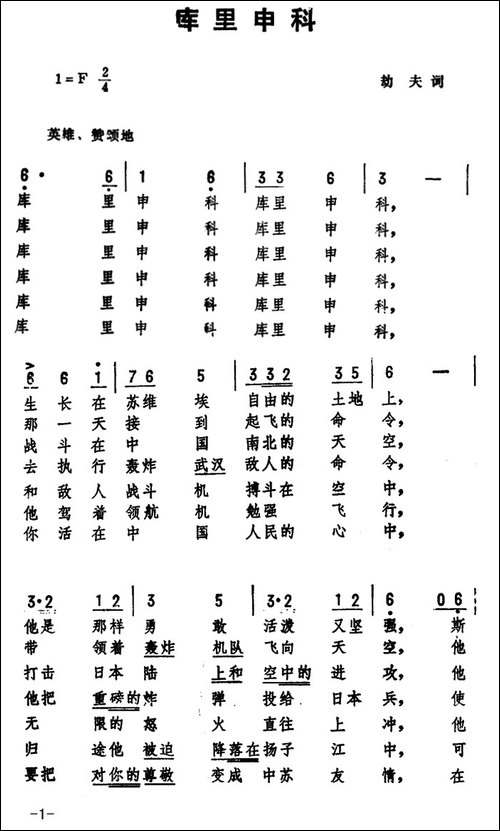 库里申科
1=F 2/4
劫夫词
英雄、赞颂地
6· 6 | 1 6 | 3 3 6 | 3 — |
库 里 申 科 库里 申 科,
库 里 申 科 库里 申 科,
库 里 申 科 库里 申 科,
库 里 申 科 库里 申 科,
库 里 申 科 库里 申 科,
库 里 申 科 库里 申 科,
6 6 1 | 7 6 5 | 3 3 2 3 5 | 6 — |
生 长 在 苏维 埃 自由的 土地 上,
那 一 天 接 到 起飞的 命 令,
战 斗 在 中 国 南北的 天 空,
去 执 行 轰炸 武汉 敌人的 命 令,
和 敌 人 战斗 机 搏斗在 空 中,
他 驾 着 领航 机 勉强 飞 行,
你 活 在 中 国 人民的 心 中,
3·2 1 2 | 3 5 | 3·2 1 2 | 6 0 6 |
他是 那样 勇 敢 活泼 又坚 强, 斯
带 领着 轰炸 机队 飞向 天 空, 他
打击 日本 陆 上和 空中的 进 攻, 他
他把 重磅的 炸 弹 投给 日本 兵, 使
无 限的 怒 火 直往 上 冲, 他
归 途他 被迫 降落在 扬子 江 中, 可
要把 对你的 尊敬 变成 中苏 友 情, 在
-1-